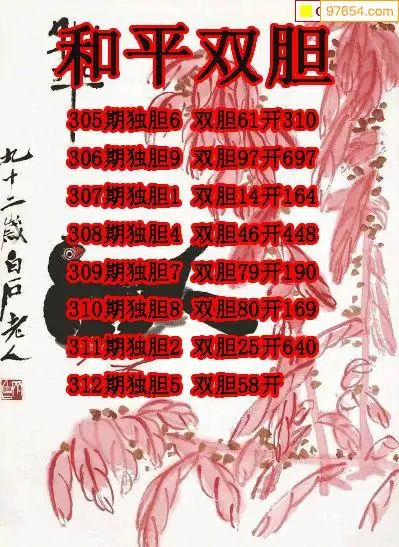 97654.com
和平双胆
305期独胆6 双胆61开310
306期独胆9 双胆97开697
307期独胆1 双胆14开164
308期独胆4 双胆46开448
309期独胆7 双胆79开190
310期独胆8 双胆80开169
311期独胆2 双胆25开640
312期独胆5 双胆58开
九十二岁白石老人